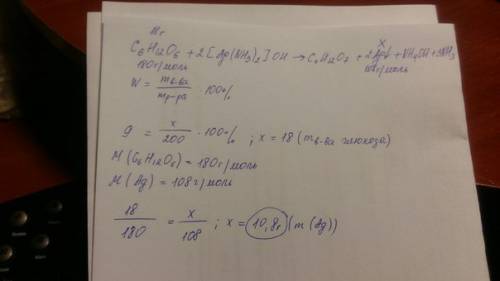 18г
C₆H₁₂O₆ + 2[Ag(NH₃)₂]OH → C₆H₁₂O₇ + 2Ag↓ + NH₄OH + 3NH₃
180г/моль 108г/моль
W = m в-ва / m р-ра · 100%
9 = x / 200 · 100% ; x = 18 (m в-ва глюкоза)
M(C₆H₁₂O₆) = 180г/моль
M(Ag) = 108г/моль
18 / 180 = x / 108 ; x = 10,8г (m(Ag))